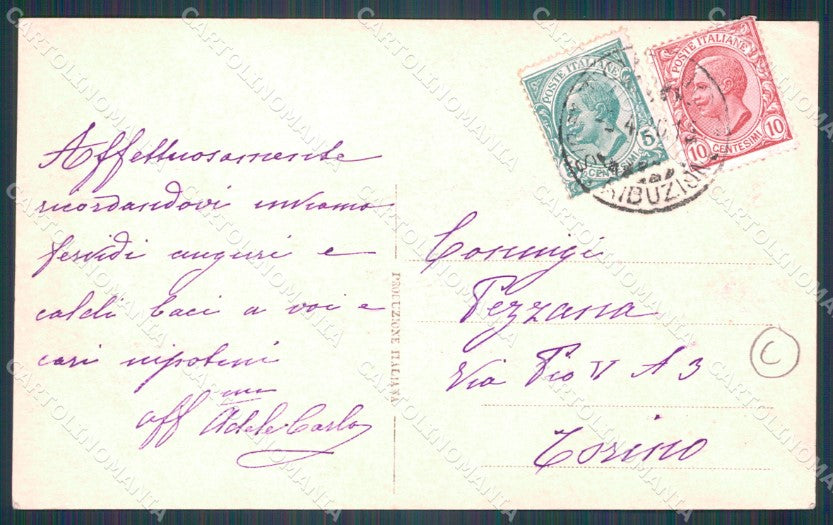 Affettuosamente
ricordandovi inviamo
fervidi auguri e
caldi baci a voi e
cari nipotini
aff mi Adele Carlo
PRODUZIONE ITALIANA
POSTE ITALIANE
5
CENTESIMI
POSTE ITALIANE
10 CENTESIMI 10
RIBUZION
Coniugi
Pezzana
Via Pio V N 3
Torino
C
CARTOLINOMANIA